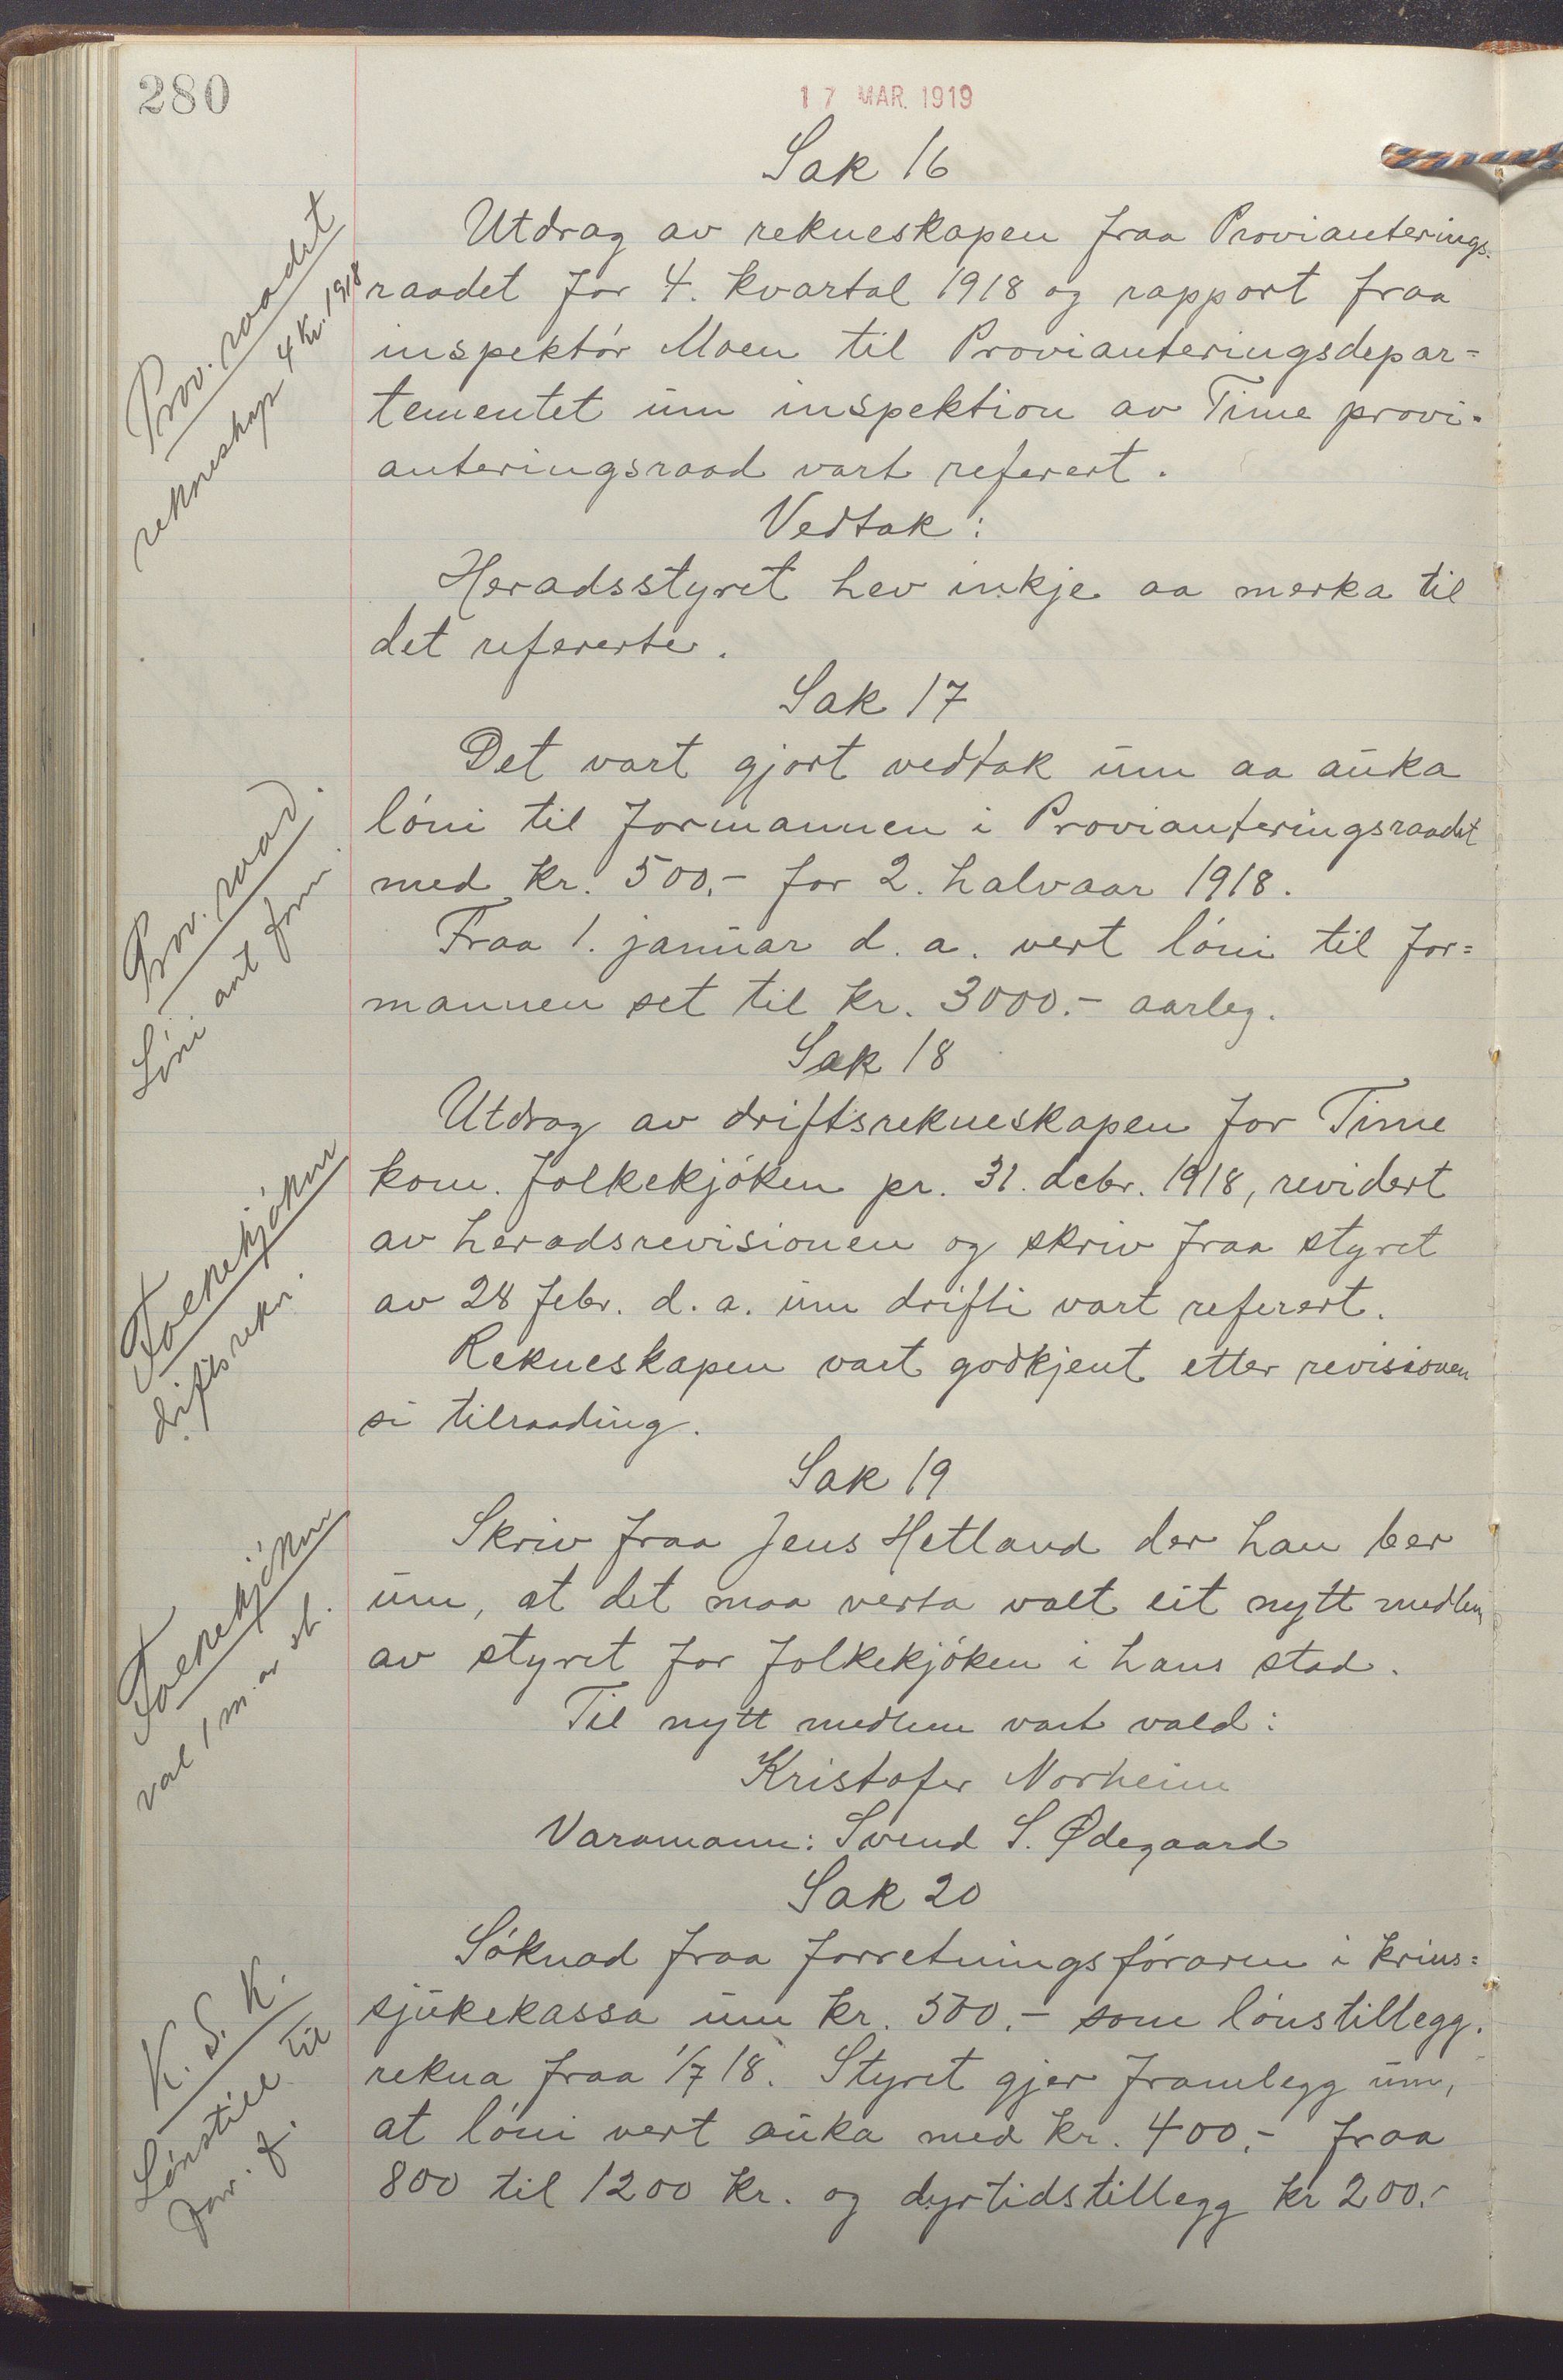 280
17 MAR. 1919
Sak 16
Prov. raadet
rekneskap 4 kv. 1918
Utdrag av rekneskapen fraa Provianterings-
raadet for 4. kvartal 1918 og rapport fraa
inspektór Moen til Provianteringsdepar=
tementet um inspektion av Time provi-
anteringsraad vart referert.
Vedtak:
Heradsstyret hev inkje aa merka til
det refererte.
Sak 17
Prov. raad.
Lóni aat form.
Det vart gjort vedtak um aa auka
lóni til formannen i Provianteringsraadet
med kr. 500,- for 2. halvaar 1918.
Fraa 1. januar d. a. vert lóni til for=
mannen set til kr. 3000.- aarleg.
Sak 18
Folkekjóken
driftsrekn.
Utdrag av driftsrekneskapen for Time
kom. folkekjóken pr. 31. debr. 1918, revidert
av heradsrevisionen og skriv fraa styret
av 28 febr. d. a. um drifti vart referert.
Rekneskapen vart godkjent etter revisionen
si tilraading.
Sak 19
Folkekjóken
val 1 m. av st.
Skriv fraa Jens Hetland der han ber
um, at det maa verta valt eit nytt medlem
av styret for folkekjóken i hans stad.
Til nytt medlem vart vald:
Kristofer Norheim
Varamann: Svend S. Ødegaard
Sak 20
K. S. K.
Lónstill. til
for. f.
Sóknad fraa forretningsfóraren i krins=
sjukekassa um kr. 500.- som lónstillegg.
rekna fraa 1/7 18. Styret gjer framlegg um,
at lóni vert auka med kr. 400,- fraa
800 til 1200 kr. og dyrtidstillegg kr 200.-